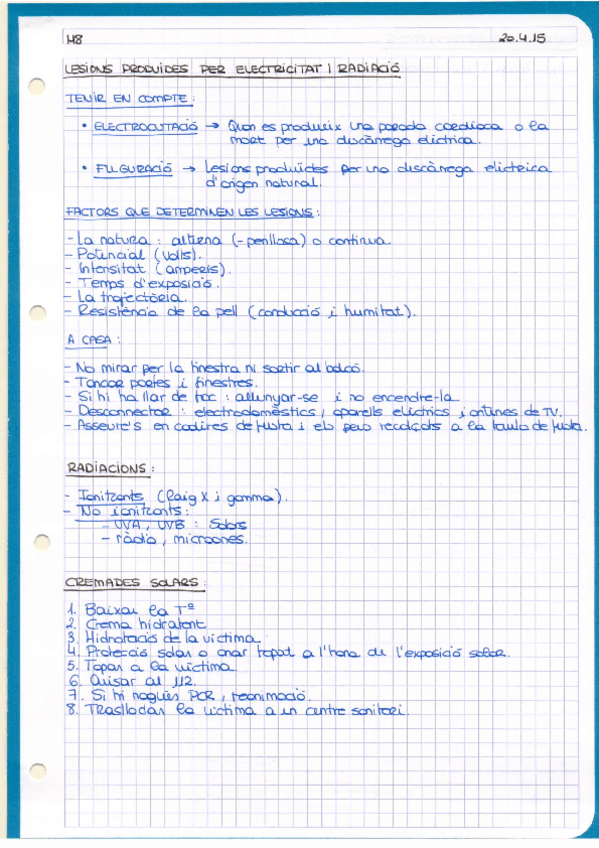 H8 20.4.15
LESIONS PRODUÏDES PER ELECTRICITAT I RADIACIÓ
TENIR EN COMPTE:
• ELECTROCUTACIÓ → Quan es produeix una parada cardíaca o la
mort per una discàrrega elèctrica.
• FULGURACIÓ → Lesions produïdes per una discàrrega elèctrica
d'origen natural.
FACTORS QUE DETERMINEN LES LESIONS:
- La natura: alterna (- perillosa) o continua.
- Potencial (volts).
- Intensitat (amperis).
- Temps d'exposició.
- La trajectòria.
- Resistència de la pell (conducció i humitat).
A CASA:
- No mirar per la finestra ni sortir al balcó.
- Tancar portes i finestres.
- Si hi ha llar de foc: allunyar-se i no encendre-la.
- Desconnectar: electrodomèstics, aparells elèctrics i antenes de TV.
- Asseure's en cadires de fusta i els peus recolçats a la taula de fusta.
RADIACIONS:
- Ionitzants (Raig X i gamma).
- No ionitzants:
- UVA, UVB: Solars
- ràdio, microones.
CREMADES SOLARS:
1. Baixar la Tª
2. Crema hidratant
3. Hidratació de la víctima
4. Protecció solar o anar tapat a l'hora de l'exposició solar.
5. Tapar a la víctima
6. Avisar al 112.
7. Si hi hagués PCR, reanimació.
8. Traslladar la víctima a un centre sanitari.